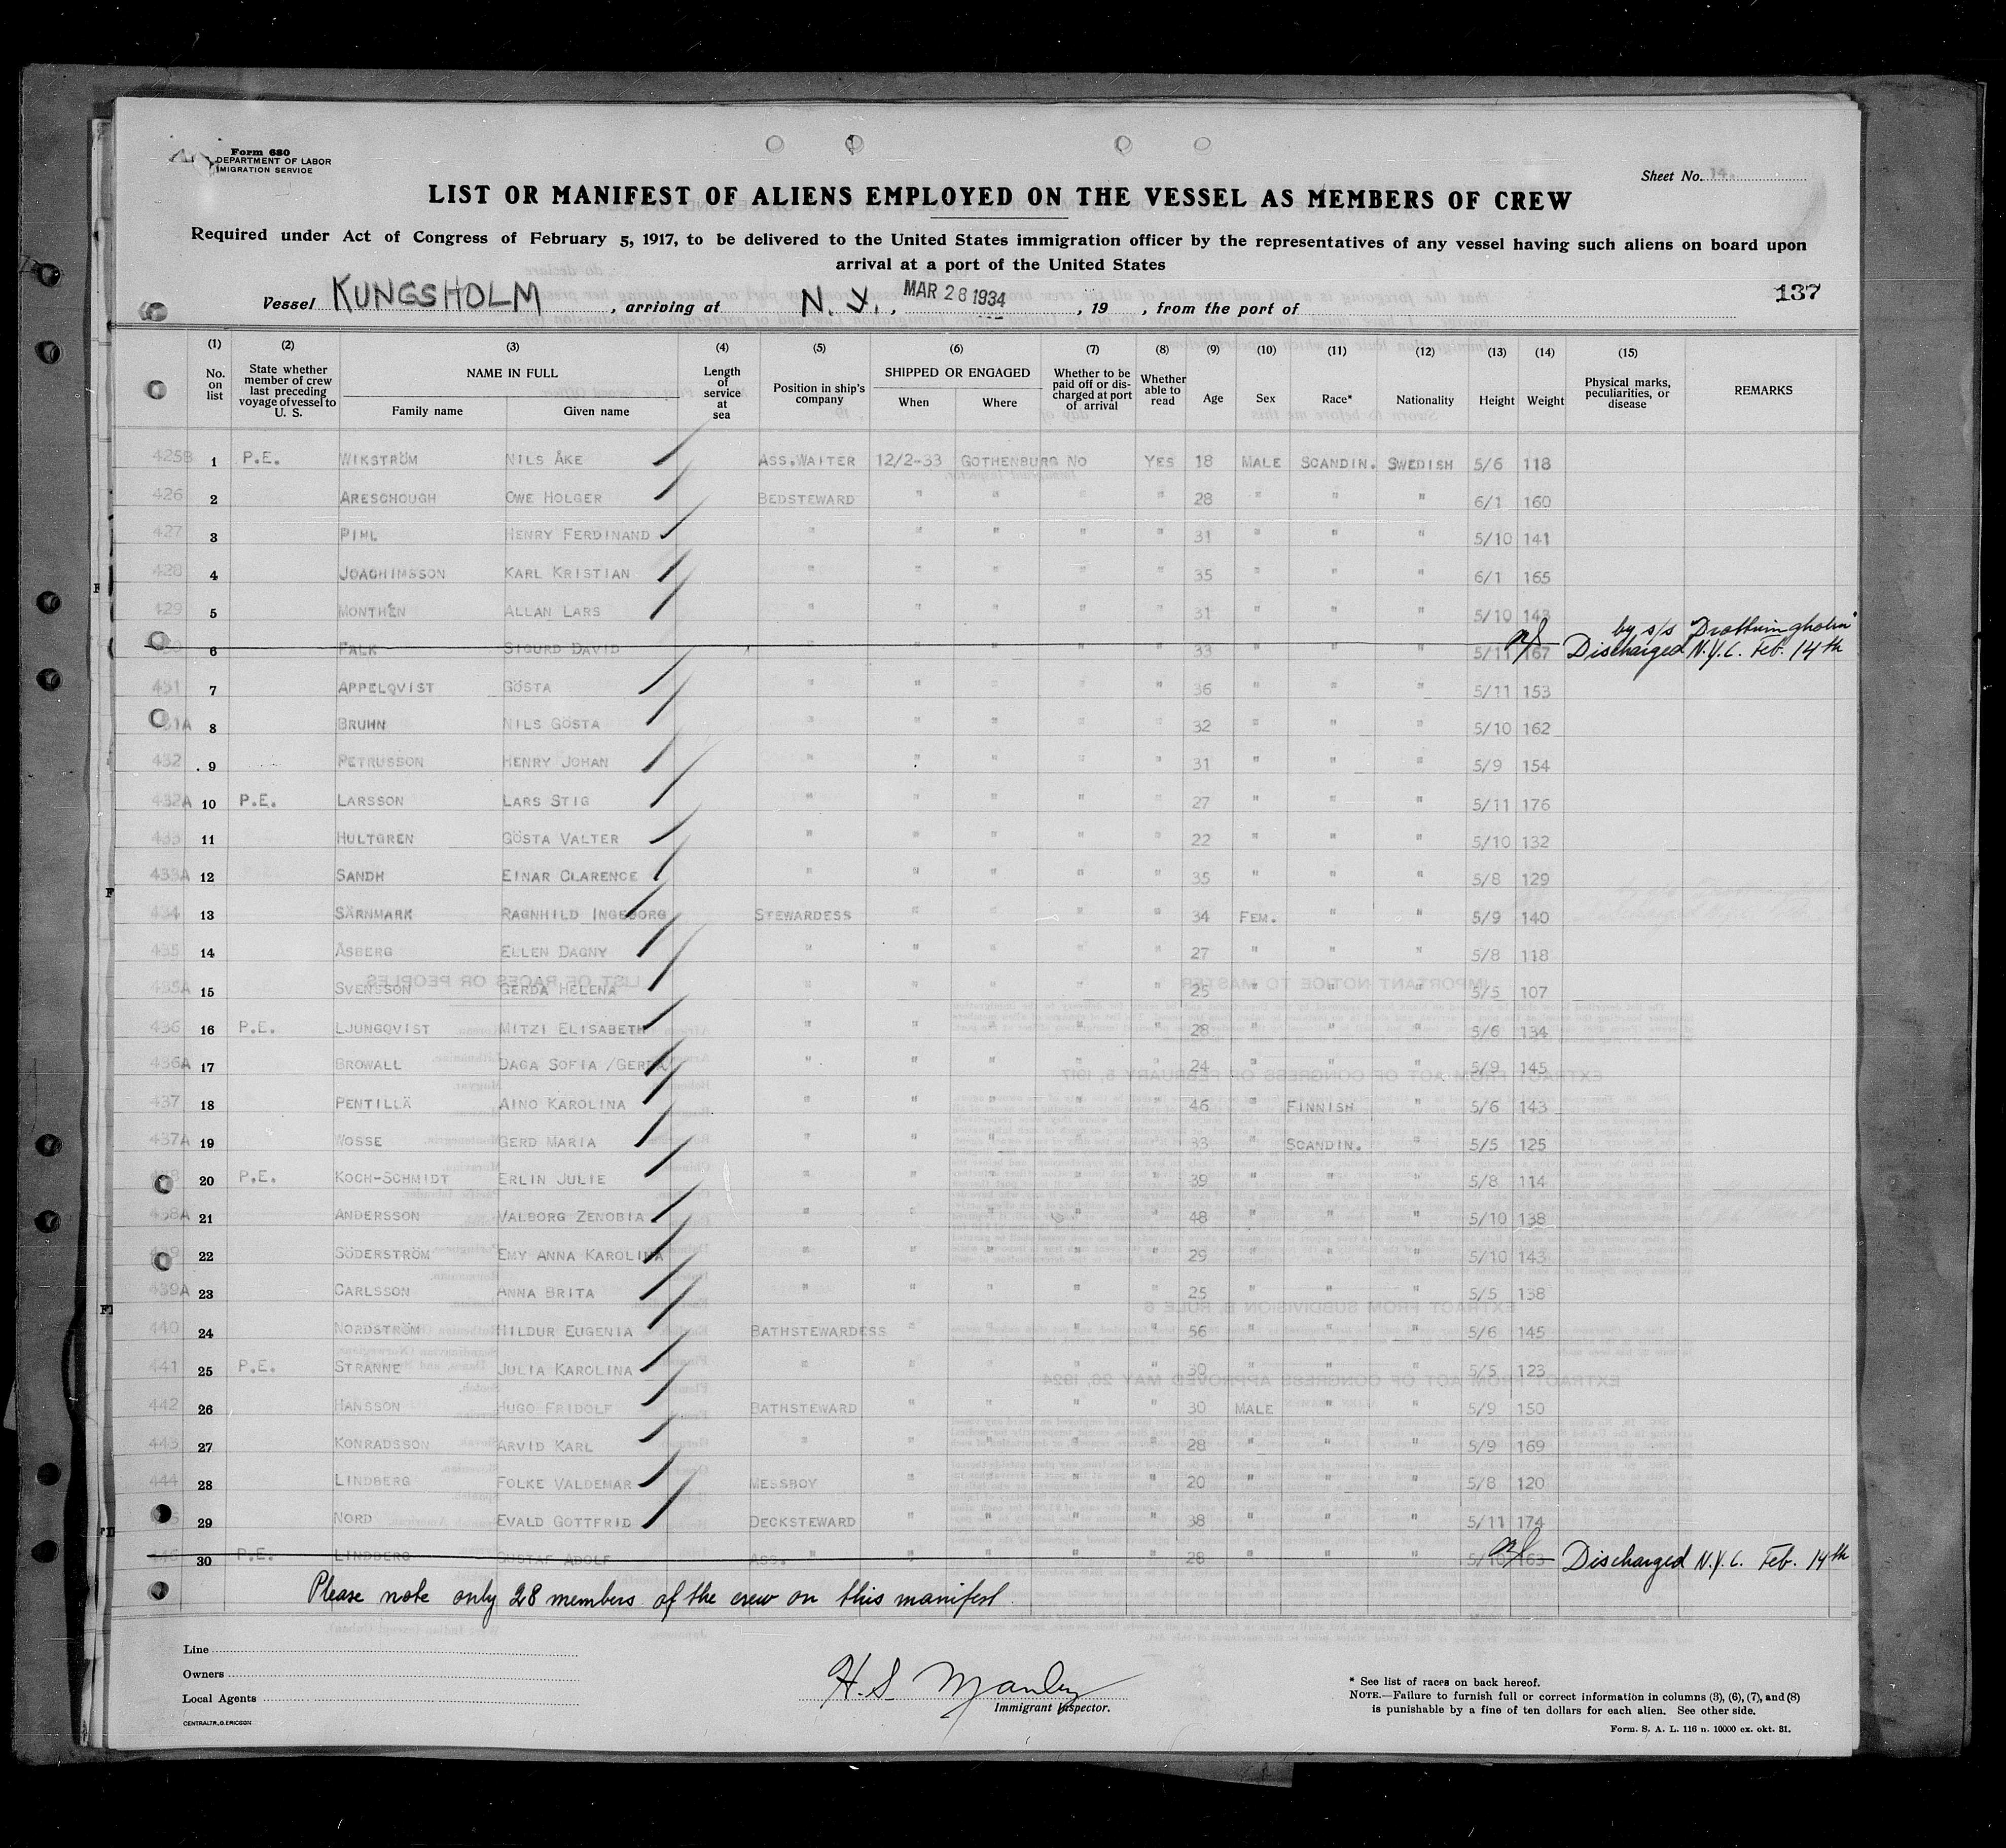 Form 680
DEPARTMENT OF LABOR
IMIGRATION SERVICE
Sheet No. 14.
LIST OR MANIFEST OF ALIENS EMPLOYED ON THE VESSEL AS MEMBERS OF CREW
Required under Act of Congress of February 5, 1917, to be delivered to the United States immigration officer by the representatives of any vessel having such aliens on board upon
arrival at a port of the United States
Vessel KUNGSHOLM, arriving at N. Y., MAR 28 1934, 19 , from the port of
137
(1) (2) (3) (4) (5) (6) (7) (8) (9) (10) (11) (12) (13) (14) (15)
No. on list | State whether member of crew last preceding voyage of vessel to U. S. | NAME IN FULL | Family name | Given name | Length of service at sea | Position in ship's company | SHIPPED OR ENGAGED | When | Where | Whether to be paid off or discharged at port of arrival | Whether able to read | Age | Sex | Race* | Nationality | Height | Weight | Physical marks, peculiarities, or disease | REMARKS
425B 1 P.E. WIKSTRÖM NILS ÅKE ASS.WAITER 12/2-33 GOTHENBURG NO YES 18 MALE SCANDIN. SWEDISH 5/6 118
426 2 ARESCHOUGH OWE HOLGER BEDSTEWARD " " " " 28 " " " 6/1 160
427 3 PIHL HENRY FERDINAND " " " " " 31 " " " 5/10 141
428 4 JOACHIMSSON KARL KRISTIAN " " " " " 35 " " " 6/1 165
429 5 MONTHÉN ALLAN LARS " " " " " 31 " " " 5/10 143
by s/s "Drottningholm"
6 FALK SIGURD DAVID " " " " " 33 " " " 5/11 167 Discharged N.Y.C. Feb. 14th
431 7 APPELQVIST GÖSTA " " " " " 36 " " " 5/11 153
31A 8 BRUHN NILS GÖSTA " " " " " 32 " " " 5/10 162
432 9 PETRUSSON HENRY JOHAN " " " " " 31 " " " 5/9 154
432A 10 P.E. LARSSON LARS STIG " " " " " 27 " " " 5/11 176
433 11 HULTGREN GÖSTA VALTER " " " " " 22 " " " 5/10 132
433A 12 SANDH EINAR CLARENCE " " " " " 35 " " " 5/8 129
434 13 SÄRNMARK RAGNHILD INGEBORG STEWARDESS " " " " 34 FEM. " " 5/9 140
435 14 ÅSBERG ELLEN DAGNY " " " " " 27 " " " 5/8 118
435A 15 SVENSSON GERDA HELENA " " " " " 25 " " " 5/5 107
436 16 P.E. LJUNGQVIST MITZI ELISABETH " " " " " 28 " " " 5/6 134
436A 17 BROWALL DAGA SOFIA /GERDA " " " " " 24 " " " 5/9 145
437 18 PENTILLÄ AINO KAROLINA " " " " " 46 " FINNISH " 5/6 143
437A 19 WOSSE GERD MARIA " " " " " 33 " SCANDIN. " 5/5 125
20 P.E. KOCH-SCHMIDT ERLIN JULIE " " " " " 39 " " " 5/8 114
438A 21 ANDERSSON VALBORG ZENOBIA " " " " " 48 " " " 5/10 138
22 SÖDERSTRÖM EMY ANNA KAROLINA " " " " " 29 " " " 5/10 143
439A 23 CARLSSON ANNA BRITA " " " " " 25 " " " 5/5 138
440 24 NORDSTRÖM HILDUR EUGENIA BATHSTEWARDESS " " " " 56 " " " 5/6 145
441 25 P.E. STRANNE JULIA KAROLINA " " " " " 30 " " " 5/5 123
442 26 HANSSON HUGO FRIDOLF BATHSTEWARD " " " " 30 MALE " " 5/9 150
443 27 KONRADSSON ARVID KARL " " " " " 28 " " " 5/9 169
444 28 LINDBERG FOLKE VALDEMAR MESSBOY " " " " 20 " " " 5/8 120
29 NORD EVALD GOTTFRID DECKSTEWARD " " " " 38 " " " 5/11 174
446 30 P.E. LINDBERG GUSTAF ADOLF ASS. " " " " " 28 " " " 5/10 163 Discharged N.Y.C. Feb. 14th
Please note only 28 members of the crew on this manifest.
Line
Owners
Local Agents
CENTRALTR.,G.ERICSON
H. S. Manley
Immigrant Inspector.
* See list of races on back hereof.
NOTE.—Failure to furnish full or correct information in columns (3), (6), (7), and (8)
is punishable by a fine of ten dollars for each alien. See other side.
Form. S. A. L. 116 n. 10000 ex. okt. 31.